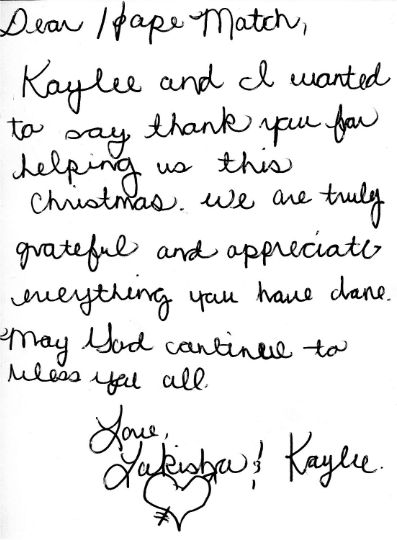 Dear Hope Match,
Kaylee and I wanted
to say thank you for
helping us this
Christmas. We are truly
grateful and appreciate
everything you have done.
May God continue to
bless you all.
Love,
Lakisha & Kaylee.